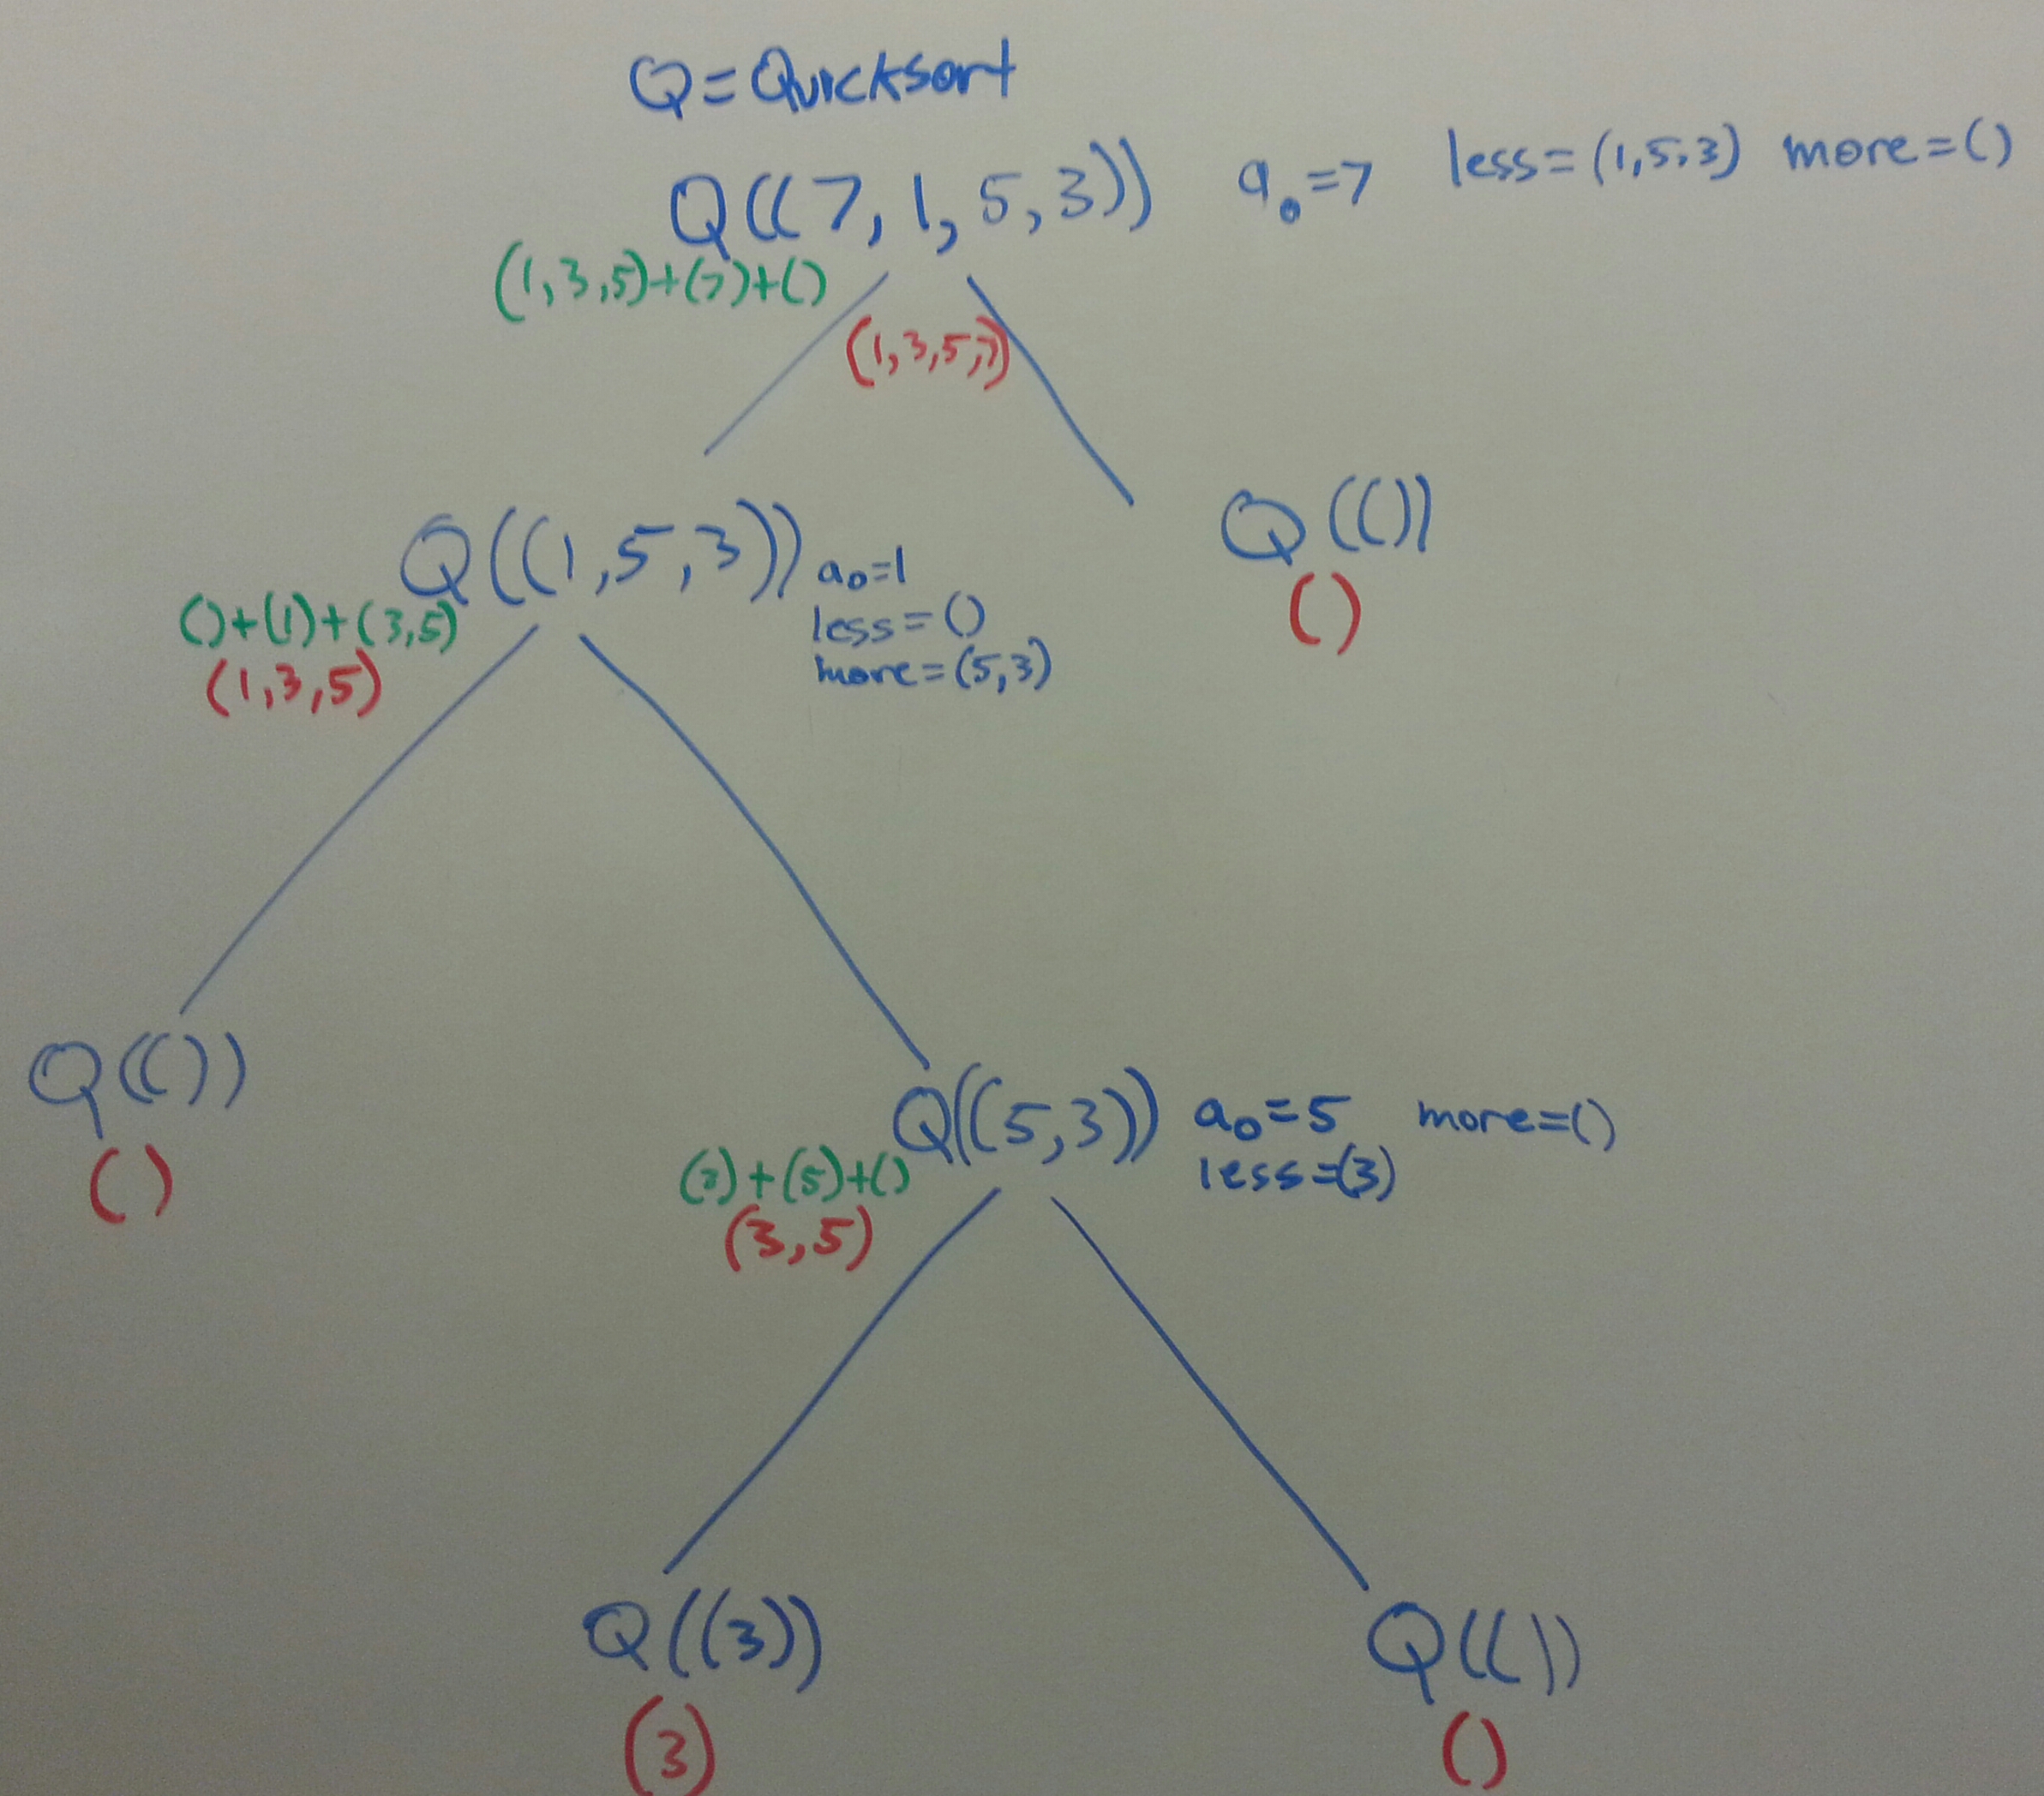 Q=Quicksort
Q((7,1,5,3)) a₀=7 less=(1,5,3) more=()
(1,3,5)+(7)+()
(1,3,5,7)
Q((1,5,3))
a₀=1
less=()
more=(5,3)
()+(1)+(3,5)
(1,3,5)
Q(())
()
Q(())
()
Q((5,3)) a₀=5 more=()
less=(3)
(3)+(5)+()
(3,5)
Q((3))
(3)
Q(())
()